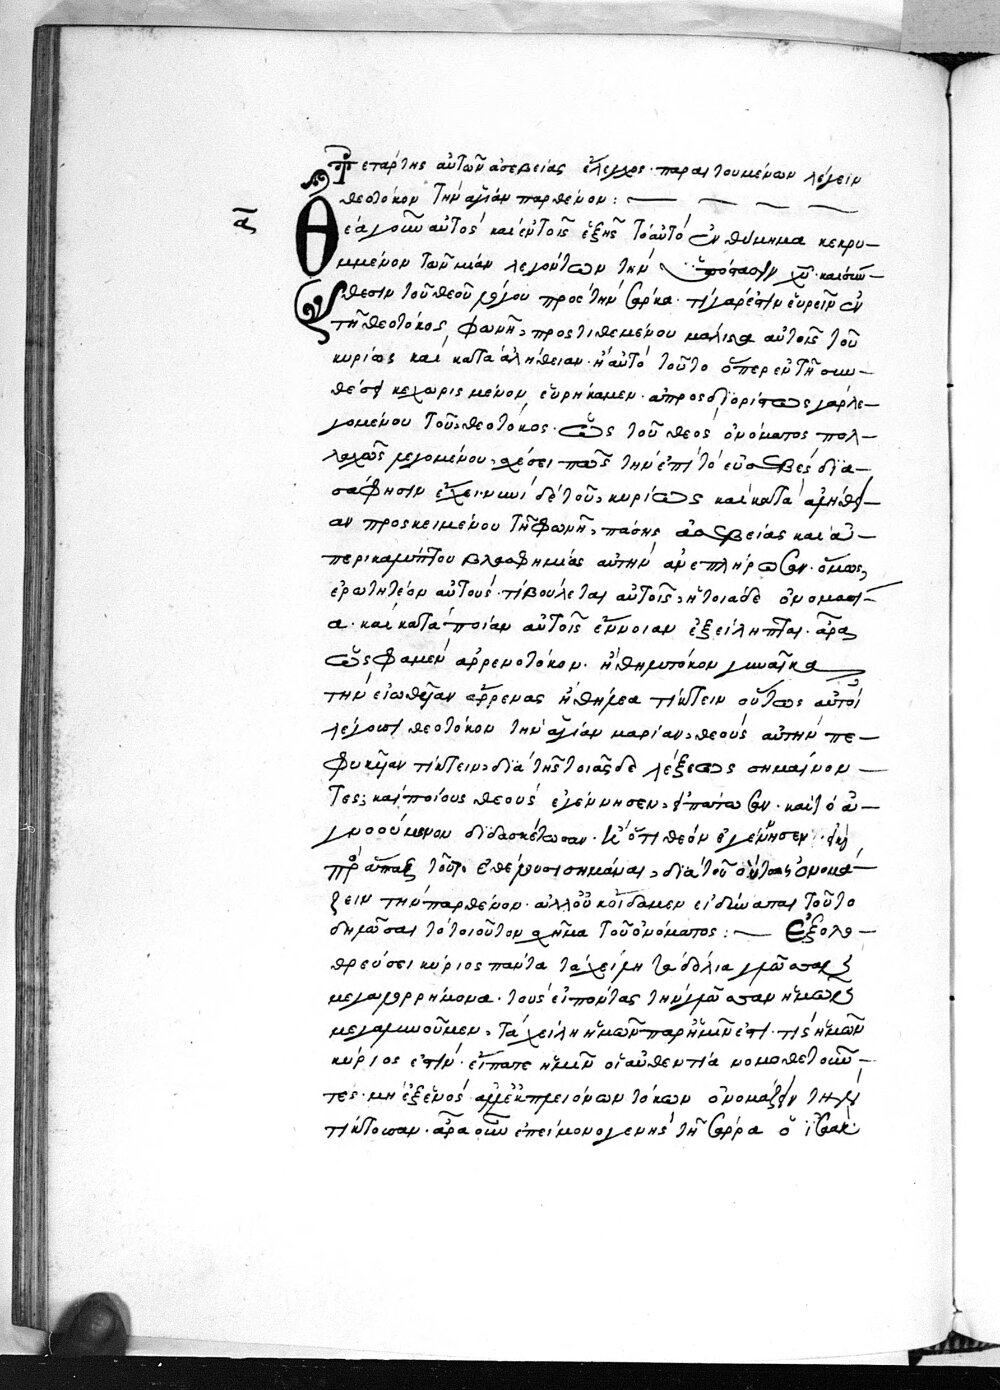 Τετάρτης αὐτῶν ἀσεβείας ἔλεγχος· παραιτουμένων λέγειν
θεοτόκον τὴν ἁγίαν παρθένον :
α Θεάγουν αὐτος καὶ ἐν τοῖς ἑξῆς τὸ αὐτὸ ἐνθύμημα κεκρυ-
μμένον τῶν μίαν λεγόντων τὴν ὑπόστασιν χυ καὶ σύν-
θεσιν τοῦ θεοῦ λόγου πρὸς τὴν σάρκα· τί γάρ ἐστιν εὑρεῖν ἐν
τῇ θεοτόκος φωνῇ, προστιθεμένου μάλιστα αὐτοῖς τοῦ
κυρίως καὶ κατὰ ἀλήθειαν· ἢ αὐτὸ τοῦτο ὅπερ ἐν τῇ συν-
θέσει κεχωρισμένον εὑρήκαμεν· ἀπροσδιορίστως γὰρ λε-
γομένου τοῦ θεοτόκος· ὡς τοῦ θεὸς ὀνόματος πολ-
λαχῶς λεγομένου, σχέσει πως τὴν ἐπὶ τὸ εὐσεβὲς δια-
σάφησιν ἔχει· νυνὶ δὲ τοῦ κυρίως καὶ κατὰ ἀλήθει-
αν προσκειμένου τῇ φωνῇ, πάσης ἀσεβείας καὶ ἀ-
περικαλύπτου βλασφημίας αὐτὴν ἀνεπλήρωσαν· ὅμως
ἐρωτητέον αὐτούς· τί βούλεται αὐτοῖς, ἡ τοιάδε ὀνομασί-
α· καὶ κατὰ ποίαν αὐτοῖς ἔννοιαν ἐξείληπται· ἆρα
ὥς φαμεν ἀρρενοτόκον· ἢ θηλυτόκον γυναῖκα
τὴν εἰωθεῖαν ἄρρενας ἢ θήλεα τίκτειν οὕτως αὐτοὶ
λέγουσι θεοτόκον τὴν ἁγίαν μαρίαν, θεοὺς αὐτὴν πε-
φυκῖαν τίκτειν, διὰ τῆς τοιᾶσδε λέξεως σημαίνον-
τες; καὶ ποίους θεοὺς ἐγέννησεν, εἰπάτωσαν· καὶ τὸ ἀ-
γνοούμενον διδασκέτωσαν· ἢ ὅτι θεὸν ἐγέννησεν·
πρὸ ἅπαξ τοῦτο ἐθέλουσι σημᾶναι, διὰ τοῦ οὕτως ὀνομά-
ζειν τὴν παρθένον· ἀλλ' οὐκ οἴδαμεν εἰδυῖαν τοῦτο
δηλῶσαι τὸ τοιοῦτον σχῆμα τοῦ ὀνόματος : Ἐξολο-
θρεύσει κύριος πάντα τὰ χείλη τὰ δόλια γλῶσσαν
μεγαλορρήμονα· τοὺς εἰπόντας τὴν γλῶσσαν ἡμῶν
μεγαλυνοῦμεν, τὰ χείλη ἡμῶν παρ' ἡμῖν ἐστι· τίς ἡμῶν
κύριός ἐστιν· εἴπατε ἡμῖν οἱ αὐθεντία νομοθετοῦν-
τες· μὴ ἐξ ἑνὸς ἀλλ' ἐκ πλειόνων τόκων ὀνομάζειν τὴν
τίκτουσαν· ἆρα οὖν ἐπεὶ μονογενὴς τῇ σάρρα ὁ ἰσαὰκ